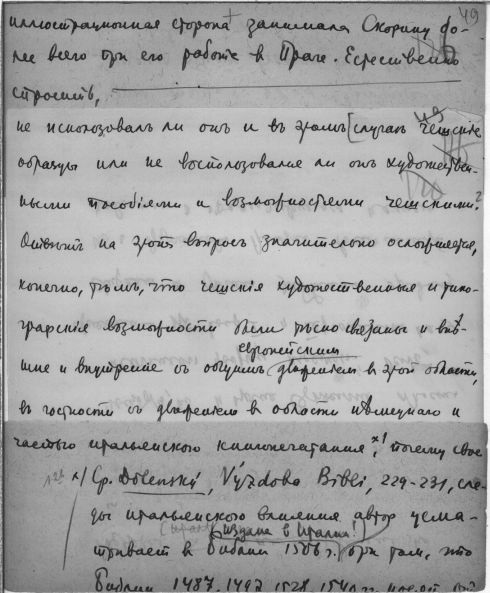 49
иллюстрационная сторона занимала Скорину бо-
лее всего при его работе в Праге. Естественно
спросить,
не использовалъ ли онъ и въ этомъ случаѣ чешскіе
образцы или не воспользовался ли онъ художествен-
ными пособіями и возможностями чешскими?
Отвѣтъ на этотъ вопросъ значительно осложняется,
конечно, тѣмъ, что чешскія художественныя и типо-
графскія возможности были тѣсно связаны и внѣ-
европейским
шне и внутренне съ общимъ движеніем в этой области,
въ частности съ движеніем в области нѣмецкаго и
частью итальянского книгопечатания, х) почему свое
х) Ср. Dolenský, Výzdoba Biblí, 229-231, сле-
ды итальянского влияния автор усма-
издана в Италии!
тривает в Библии 1506 г. при том, что
Библии 1487, 1492, 1528, 1540 гг.